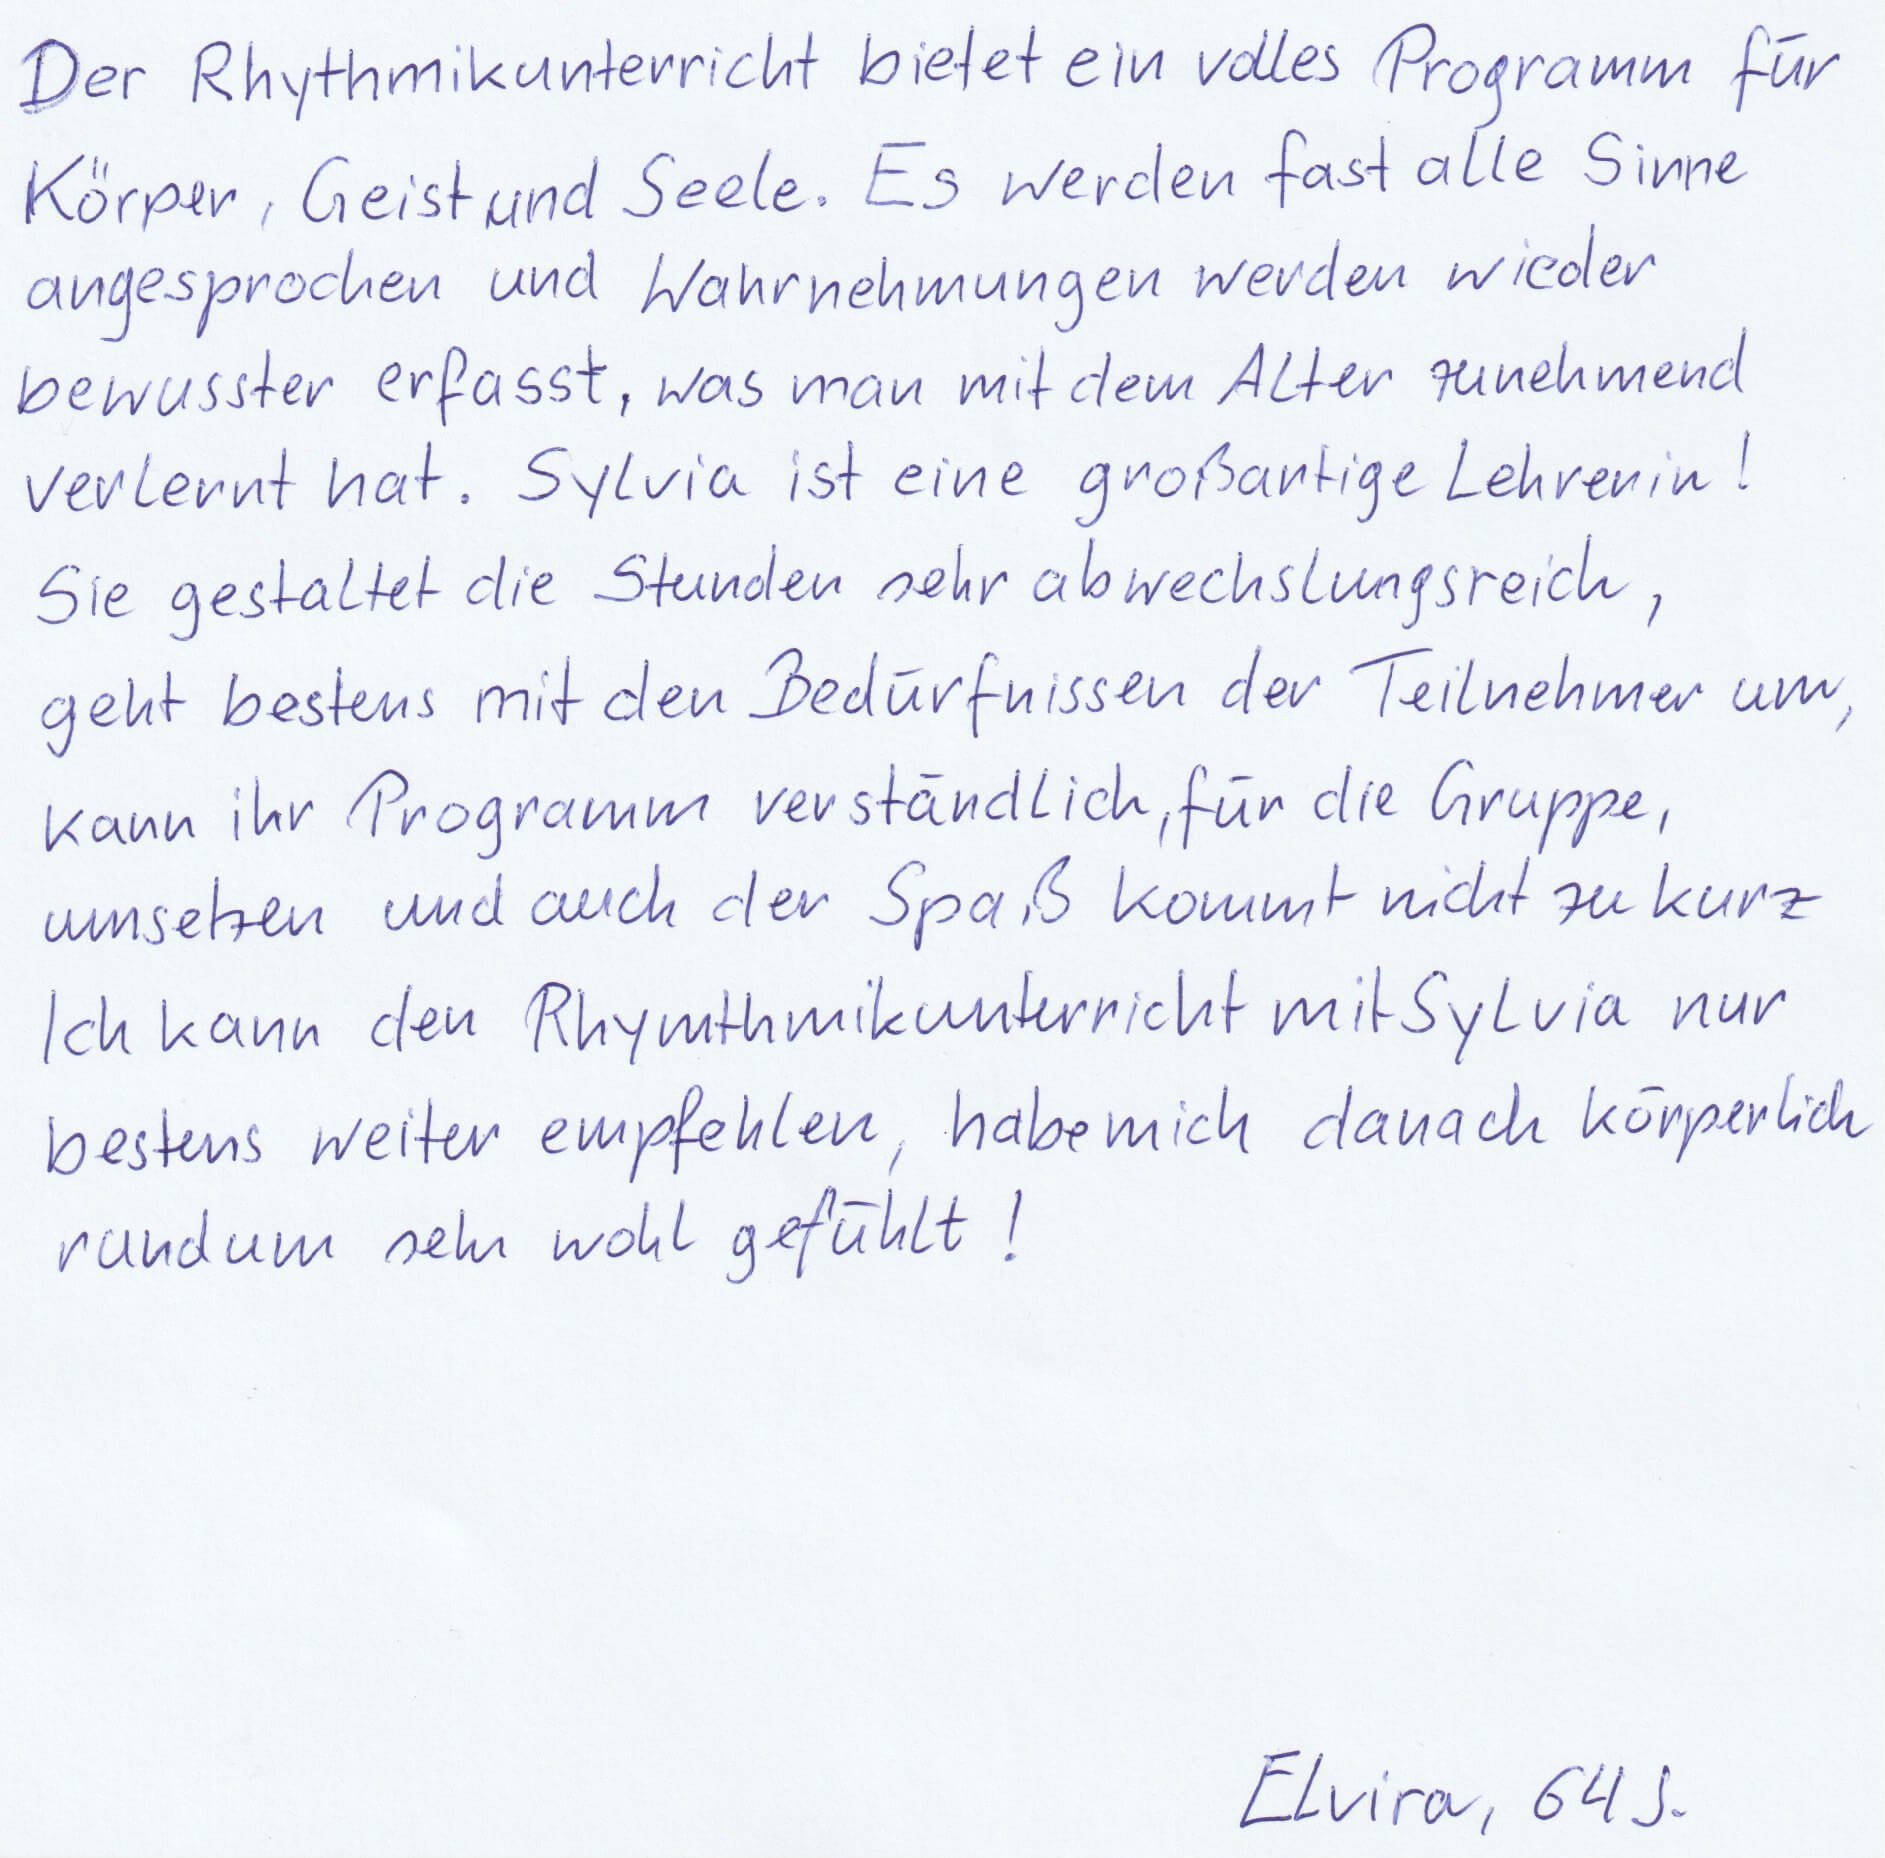 Der Rhythmikunterricht bietet ein volles Programm für
Körper, Geist und Seele. Es werden fast alle Sinne
angesprochen und Wahrnehmungen werden wieder
bewusster erfasst, was man mit dem Alter zunehmend
verlernt hat. Sylvia ist eine großartige Lehrerin!
Sie gestaltet die Stunden sehr abwechslungsreich,
geht bestens mit den Bedürfnissen der Teilnehmer um,
kann ihr Programm verständlich, für die Gruppe,
umsetzen und auch der Spaß kommt nicht zu kurz
Ich kann den Rhymthmikunterricht mit Sylvia nur
bestens weiter empfehlen, habe mich danach körperlich
rundum sehr wohl gefühlt!
Elvira, 64 J.